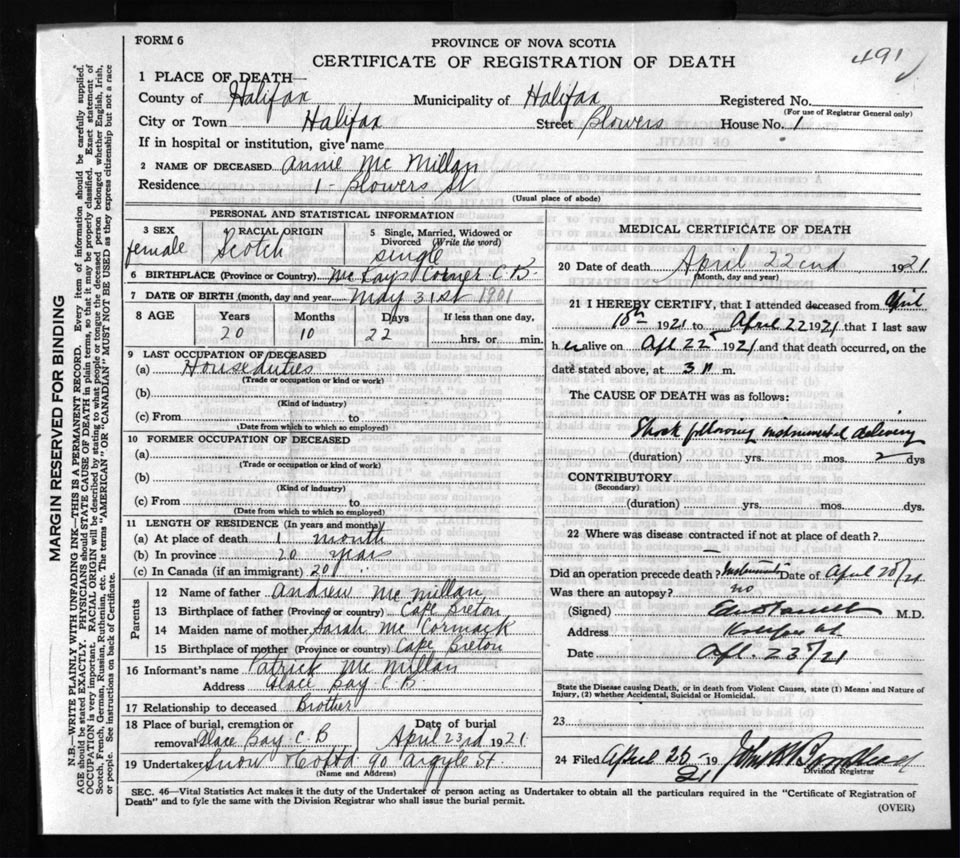 FORM 6
PROVINCE OF NOVA SCOTIA
CERTIFICATE OF REGISTRATION OF DEATH
491
1 PLACE OF DEATH—
County of Halifax Municipality of Halifax Registered No.
(For use of Registrar General only)
City or Town Halifax Street Blowers House No. 1
If in hospital or institution, give name
2 NAME OF DECEASED Annie Mc Millan
Residence 1 - Blowers St
(Usual place of abode)
PERSONAL AND STATISTICAL INFORMATION
3 SEX female
RACIAL ORIGIN Scotch
5 Single, Married, Widowed or Divorced (Write the word) single
6 BIRTHPLACE (Province or Country) McKays Corner C.B.
7 DATE OF BIRTH (month, day and year) May 31st 1901
8 AGE Years Months Days If less than one day,
20 10 22 hrs. or min.
9 LAST OCCUPATION OF DECEASED
(a) Houseduties
(Trade or occupation or kind or work)
(b)
(Kind of industry)
(c) From to
(Date from which to which so employed)
10 FORMER OCCUPATION OF DECEASED
(a)
(Trade or occupation or kind of work)
(b)
(Kind of industry)
(c) From to
(Date from which to which so employed)
11 LENGTH OF RESIDENCE (In years and months)
(a) At place of death 1 month
(b) In province 20 years
(c) In Canada (if an immigrant) 20 "
Parents
12 Name of father Andrew Mc Millan
13 Birthplace of father (Province or country) Cape Breton
14 Maiden name of mother Sarah Mc Cormack
15 Birthplace of mother (Province or country) Cape Breton
16 Informant's name Patrick Mc Millan
Address Glace Bay C B.
17 Relationship to deceased Brother
18 Place of burial, cremation or Date of burial
removal Glace Bay C.B April 23rd 1921
19 Undertaker Snow & Co Ltd 90 Argyle St.
(Name and Address)
MEDICAL CERTIFICATE OF DEATH
20 Date of death April 22nd 1921
(Month, day and year)
21 I HEREBY CERTIFY, that I attended deceased from April
1921 to April 22 1921 that I last saw
h er alive on Apl 22 1921 and that death occurred, on the
date stated above, at 3 m.
The CAUSE OF DEATH was as follows:
Shock following instrumental delivery
(duration) yrs. mos. 2 dys
CONTRIBUTORY
(Secondary)
(duration) yrs. mos. dys.
22 Where was disease contracted if not at place of death?
—
Did an operation precede death? Date of April 20/21
Was there an autopsy? no
(Signed) M.D.
Address
Date Apl. 23/21
State the Disease causing Death, or in death from Violent Causes, state (1) Means and Nature of
Injury, (2) whether Accidental, Suicidal or Homicidal.
23
24 Filed April 26 1921 John
Division Registrar
SEC. 46—Vital Statistics Act makes it the duty of the Undertaker or person acting as Undertaker to obtain all the particulars required in the "Certificate of Registration of
Death" and to fyle the same with the Division Registrar who shall issue the burial permit.
(OVER)
MARGIN RESERVED FOR BINDING
N.B.—WRITE PLAINLY WITH UNFADING INK—THIS IS A PERMANENT RECORD. Every item of information should be carefully supplied.
AGE should be stated EXACTLY. PHYSICIANS should STATE CAUSE OF DEATH in plain terms, so that it may be properly classified. Exact statement of
OCCUPATION is very important. RACIAL ORIGIN will be described by stating to what people or tongue the deceased person belonged whether English, Irish,
Scotch, French, German, Russian, Ruthenian, etc. The terms "AMERICAN" OR "CANADIAN" MUST NOT BE USED as they express citizenship but not a race
or people. See instructions on back of Certificate.